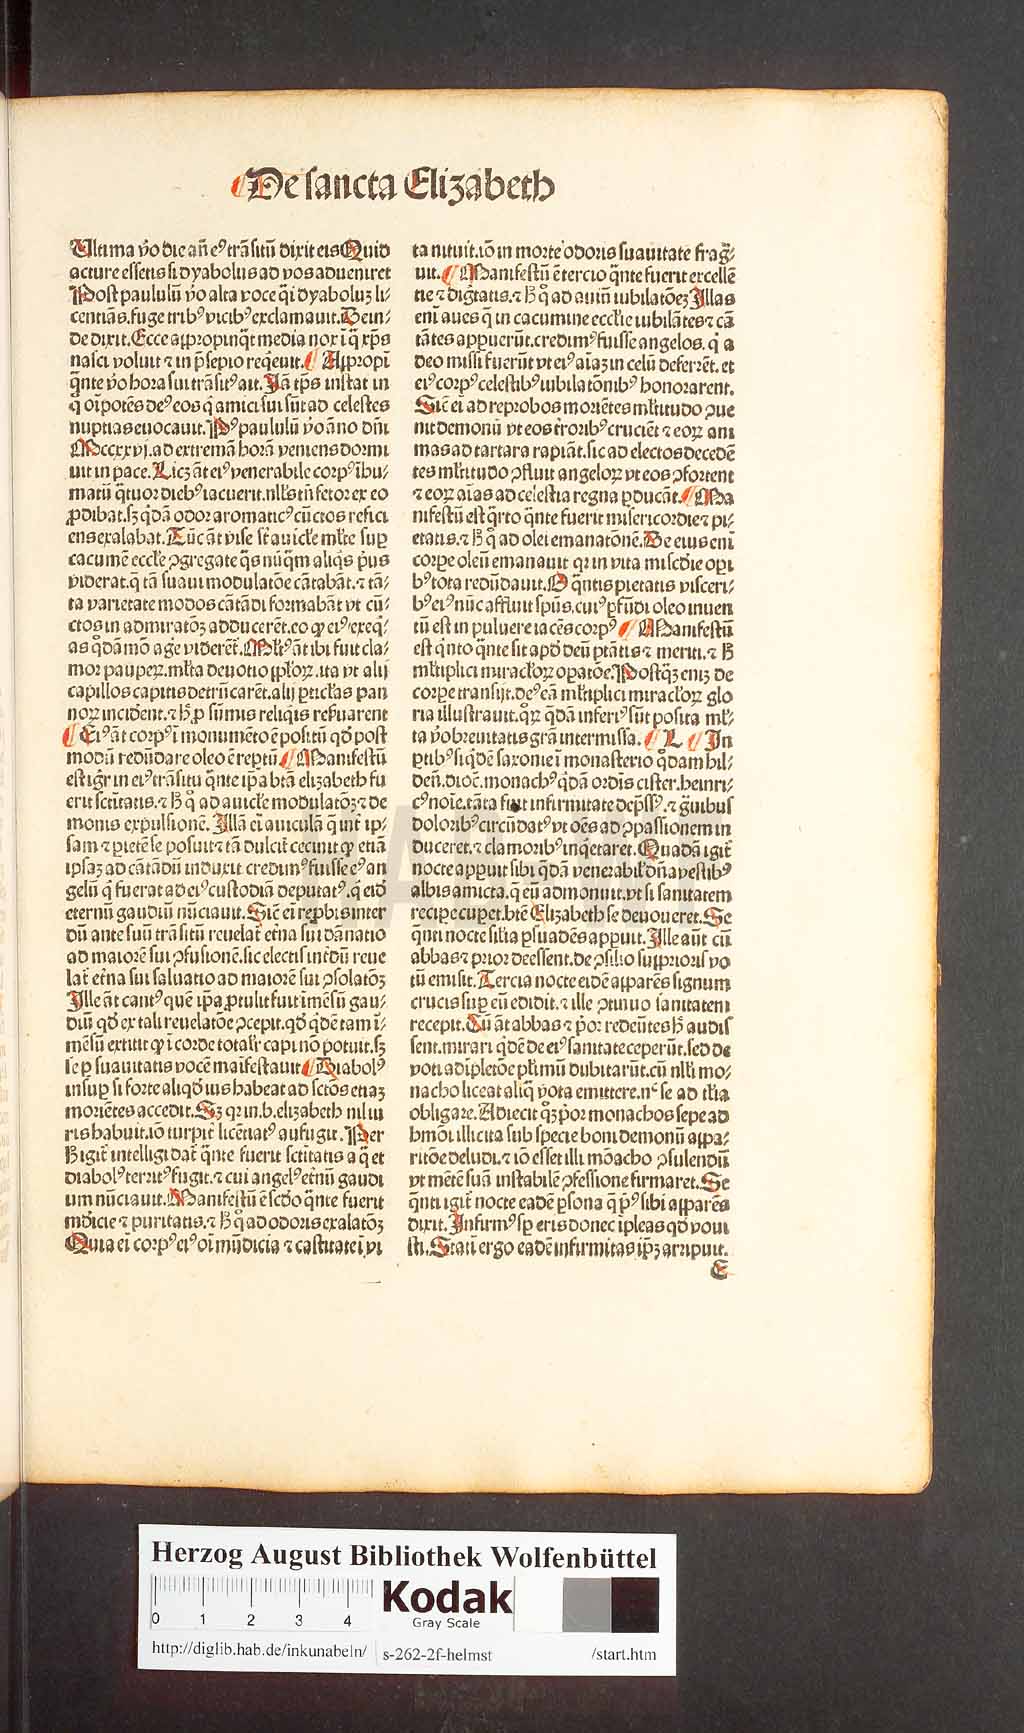 De sancta Elizabeth
Ultima ṽo die añ eꝰ trãsitũ dixit eis Quid
acture essetis si dyabolus ad vos adueniret
Post paululũ ṽo alta voce q̃i dyaboluz li-
centiãs. fuge tribꝰ vicibꝰ exclamauit. Dein-
de dixit. Ecce appropinq̃t media nox ĩ q̃ xp̃s
nasci voluit ⁊ in p̃sepio req̃euit. Appropĩ
q̃nte ṽo hora sui trãsitꝰ ait. Jã tp̃s instat in
q̃ oĩpotẽs deꝰ eos q̃ amici sui sũt ad celestes
nuptias euocauit. Pꝰ paululũ ṽo ãno dñi
Mccxxvj. ad extremã horã veniens dormi
uit in pace. Licz ãt eiꝰ venerabile corpꝰ ĩhu-
matũ q̃tuor diebꝰ iacuerit. nllꝰ tñ fetor ex eo
ꝓdibat. sz q̃dã odor aromaticꝰ cũctos refici
ens exalabat. Tũc ãt vise sĩt auicl̃e ml̃te suꝑ
cacumẽ eccl̃e ꝯgregate q̃s nũq̃m aliq̃s pͥus
viderat. q̃ tã suaui modulatõe cãtabãt. ⁊ tã-
ta varietate modos cãtãdi formabãt vt cũ-
ctos in admiratõꝫ adducerẽt. eo ꝙ eiꝰ exeq̃-
as q̊dãmõ age viderẽt. Ml̃tꝰ ãt ibi fuit cla-
mor pauperꝝ. ml̃ta deuotio ppl̃oꝝ. ita vt alij
capillos capitis detrũcarẽt. alij ꝑticl̃as pan
noꝝ inciderẽt. ⁊ h̃ ꝓ sũmis reliq̃is reẜuarent
Eiꝰ ãt corpꝰ ĩ monumẽto ẽ positũ qd̃ post
modũ redũdare oleo ẽ reptũ Manifestũ
est igr̃ in eiꝰ trãsitu q̃nte ip̃a btã elizabeth fu
erit sctĩtatis. ⁊ h̃ q̊ ad auicl̃e modulatõꝫ ⁊ de
monis expulsionẽ. Jllã eĩ auiculã q̃ int̃ ip-
sam ⁊ ꝑietẽ se posuit ⁊ tã dulcit̃ cecinit ꝙ etiã
ipsaꝫ ad cãtãdũ induxit credimꝰ fuisse eꝰ an
gelũ q̃ fuerat ad eiꝰ custodiã deputatꝰ. q̃ eid̃
eternũ gaudiũ nũciauit. Sic̃ eĩ reꝓbis inter
dũ ante suũ trãsitũ reuelat̃ et̃na sui dãnatio
ad maiorẽ sui ꝯfusionẽ. sic electis int̃dũ reue
lat̃ et̃na sui saluatio ad maiorẽ sui ꝯsolatõꝫ
Jlle ãt cantꝰ quẽ ip̃a ꝓtulit fuit ĩmẽsũ gau-
diũ qd̃ ex tali reuelatõe ꝯcepit. qd̃ q̃dẽ tam ĩ-
mẽsũ extitit ꝙ ĩ corde totalr̃ capi nõ potuit. sꝫ
se ꝑ suauitatis vocẽ maĩfestauit Diabolꝰ
insuꝑ si forte aliqd̃ iuis habeat ad sctõs etiaꝫ
moriẽtes accedit. Sꝫ qꝛ in. b. elizabeth nil iu
ris habuit. iõ turpit̃ licẽtiatꝰ aufugit. Per
h̃ igit̃ intelligi dat̃ q̃nte fuerit sctĩtatis a q̃ et
diabolꝰ territꝰ fugit. ⁊ cui angelꝰ et̃nũ gaudi
um nũciauit. Manifestũ ẽ sc̃do q̃nte fuerit
mũdicie ⁊ puritatis. ⁊ h̃ q̊ ad odoris exalatõꝫ
Quia eĩ corpꝰ eiꝰ oĩ mũdicia ⁊ castitate ĩ vi
ta nituit. iõ in morte odoris suauitate frag̃-
uit. Manifestũ ẽ tercio q̃nte fuerit excellẽ
tie ⁊ dig̃tatis. ⁊ h̃ q̊ ad auiũ iubilatõeꝫ Jllas
enĩ aues q̃ in cacumine eccl̃ie iubilãtes ⁊ cã
tãtes appuerũt. credimꝰ fuisse angelos. q̃ a
deo missi fuerũt vt eiꝰ aĩaꝫ in celũ deferrẽt. et
eiꝰ corpꝰ celestibꝰ iubilatõnibꝰ honorarent.
Sic̃ eĩ ad reprobos moriẽtes ml̃titudo ꝯue
nit demonũ vt eos t̃roribꝰ cruciẽt ⁊ eoꝝ ani
mas ad tartara rapiãt. sic ad electos decedẽ
tes ml̃titudo ꝯfluit angeloꝝ vt eos ꝯfortent
⁊ eoꝝ aĩas ad celestia regna ꝑducãt. Ma
nifestũ est q̃rto q̃nte fuerit misericordie ⁊ pi-
etatis. ⁊ h̃ q̊ ad olei emanatõnẽ. De eius enĩ
corꝑe oleũ emanauit qꝛ in vita misc̃die oꝑi
bꝰ tota redũdauit. O q̃ntis pietatis visceri-
bꝰ eiꝰ nũc affluit spũs. cuiꝰ ꝑfũdi oleo inuen
tũ est in puluere iacẽs corpꝰ Manifestũ
est q̃nto q̃nte sit apd̃ deũ ptãtis ⁊ meriti. ⁊ h̃
ml̃tiplici miracl̃oꝝ oꝑatõe. Postq̃ꝫ eniꝫ de
corꝑe transijt. deꝰ eã ml̃tiplici miracl̃oꝝ glo
ria illustrauit. qꝝ q̃dã inferiꝰ sũt posita ml̃-
ta ṽo breuitatis grã intermissa. L Jn
ꝑtibꝰ siq̃dẽ saxonie ĩ monasterio q̊dam hil-
deñ. dioc̃. monachꝰ q̃dã ordĩs cister. heinri-
cꝰ noĩe. tãta fuit infirmitate dep̃ssꝰ. ⁊ g̃uibus
doloribꝰ circũdatꝰ vt oẽs ad ꝯpassionem in
duceret. ⁊ clamoribꝰ inq̃etaret. Quadã igit̃
nocte appuit sibi q̃dã venerabil̃ dñ̃a vestibꝰ
albis amicta. q̃ eũ admonuit. vt si sanitatem
recipe cuꝑet. btẽ Elizabeth se deuoueret. Se
q̃nti nocte sil̃ia ꝑsuadẽs appuit. Jlle aũt cũ
abbas ⁊ prior deessent. de ꝯsilio suppioris vo
tũ emisit. Tercia nocte eidẽ apparẽs signum
crucis suꝑ eũ edidit. ⁊ ille ꝯtinuo sanitatem
recepit. Cũ ãt abbas ⁊ p̃or redeũtes h̃ audis
sent. mirari q̃dẽ de eiꝰ sanitate ceperũt. sed de
voti adĩpletõe pl̃imũ dubitarũt. cũ nlli mo-
nacho liceat aliq̃ ṽota emittere. nͨ se ad tl̃ia
obligare. Adiecit q̊ꝫ p̃or monachos sepe ad
hmõi illicita sub specie boni demonũ appa-
ritõe deludi. ⁊ iõ esset illi mõacho ꝯsulendũ
vt mẽtẽ suã instabilẽ ꝯfessione firmaret. Se
q̃nti igit̃ nocte eadẽ ꝑsona q̃ pͥꝰ sibi apparẽs
dixit. Jnfirmꝰ sꝑ eris donec ĩpleas qd̃ voui
sti. Statĩ ergo eadẽ infirmitas ip̃ꝫ arripuit.
E
Herzog August Bibliothek Wolfenbüttel
0 1 2 3 4
Kodak
Gray Scale
http://diglib.hab.de/inkunabeln/ s-262-2f-helmst /start.htm